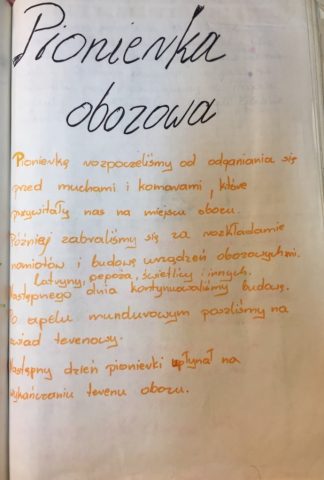 Pionierka
obozowa
Pionierkę rozpoczeliśmy od odganiania się
przed muchami i komarami, które
przywitały nas na miejscu obozu.
Później zabraliśmy się za rozkładanie
namiotów i budowę urządzeń obozowych mi.
Latryny, pepoża, świetlicy i innych.
Następnego dnia kontynuowaliśmy budowę.
Po apelu mundurowym poszliśmy na
zwiad terenowy.
Następny dzień pionierki upłynął na
wykańczaniu terenu obozu.